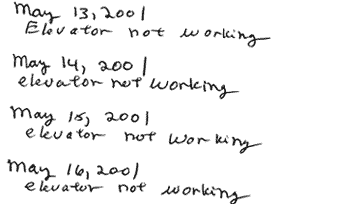 May 13, 2001
Elevator not working
May 14, 2001
elevator not working
May 15, 2001
elevator not working
May 16, 2001
elevator not working